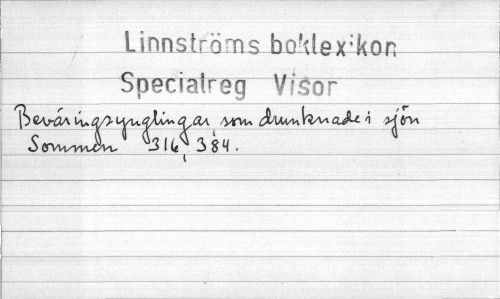 Linnströms boklexikon
Specialreg Visor
Beväringsynglingar, som drunknade i sjön
Sommen 316, 384.